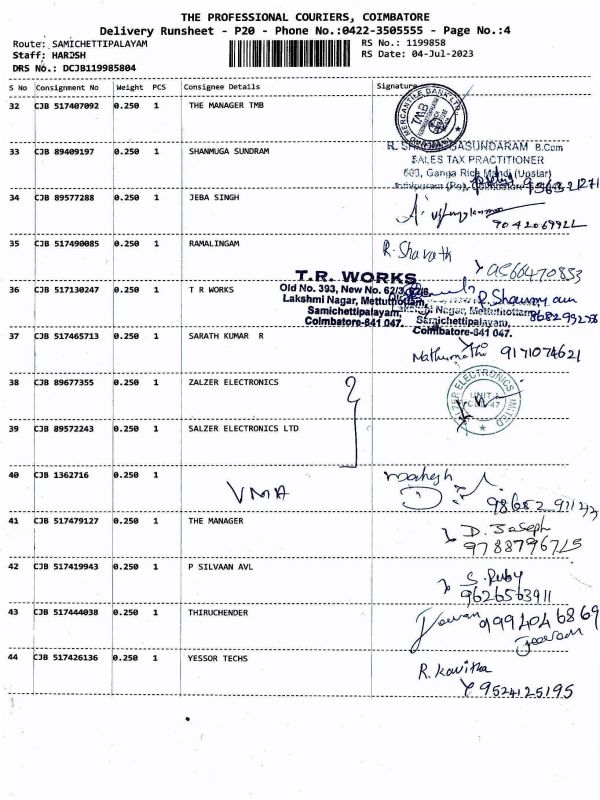 THE PROFESSIONAL COURIERS, COIMBATORE
Delivery Runsheet - P20 - Phone No.:0422-3505555 - Page No.:4
Route: SAMICHETTIPALAYAM
RS No.: 1199858
Staff: HARISH
RS Date: 04-Jul-2023
DRS No.: DCJB119985804
S No Consignment No Weight PCS Consignee Details Signature
32 CJB 517407092 0.250 1 THE MANAGER TMB
MERCANTILE BANK LTD.
TMB
33 CJB 89409197 0.250 1 SHANMUGA SUNDRAM
SUNDARAM B.Com
SALES TAX PRACTITIONER
603, Ganga Rice Mandi (Upstair)
34 CJB 89577288 0.250 1 JEBA SINGH
9042069922
35 CJB 517490085 0.250 1 RAMALINGAM
R. Sharath
9566470853
36 CJB 517130247 0.250 1 T R WORKS
T.R. WORKS
Old No. 393, New No. 62/3,
Lakshmi Nagar, Mettuthottam,
Samichettipalayam,
Coimbatore-641 047.
Samichettipalayam,
Coimbatore-641 047.
37 CJB 517465713 0.250 1 SARATH KUMAR R
9171074621
38 CJB 89677355 0.250 1 ZALZER ELECTRONICS
39 CJB 89572243 0.250 1 SALZER ELECTRONICS LTD
40 CJB 1362716 0.250 1
VMA
41 CJB 517479127 0.250 1 THE MANAGER
D. Joseph
9788796715
42 CJB 517419943 0.250 1 P SILVAAN AVL
S. Ruby
9626563911
43 CJB 517444038 0.250 1 THIRUCHENDER
9994046869
44 CJB 517426136 0.250 1 YESSOR TECHS
R. Kavitha
9524125195